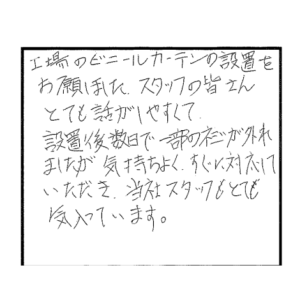 工場のビニールカーテンの設置を
お願いました。スタッフの皆さん
とても話がしやすくて、
設置後数日で一部のネジが外れ
ましたが気持ちよく、すぐに対応して
いただき、当社スタッフもとても
気入っています。